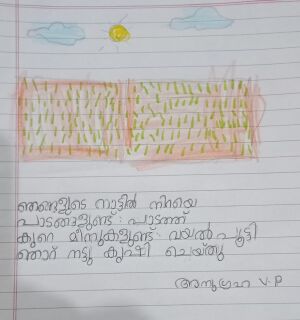 ഞങ്ങളുടെ നാട്ടിൽ നിറയെ
പാടങ്ങളുണ്ട്. പാടത്ത്
കുറെ മീനുകളുണ്ട്. വയൽ പൂട്ടി
ഞാറ് നട്ടു കൃഷി ചെയ്തു
അനുഗ്രഹ v.p